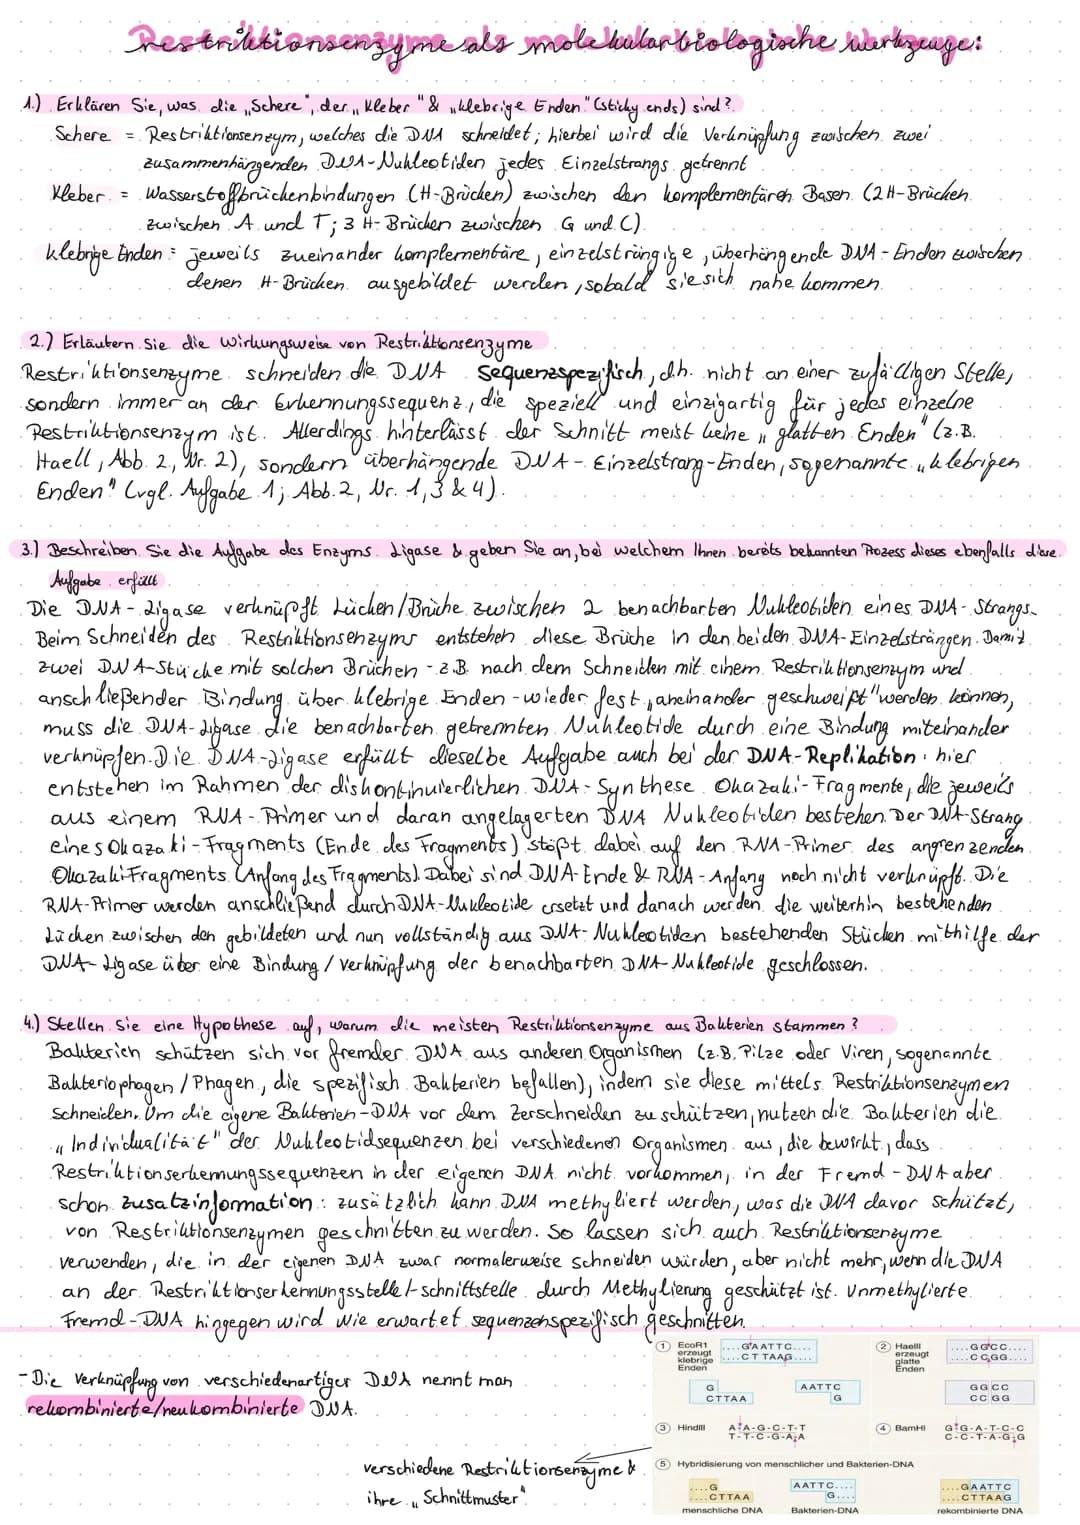 Restriktionsenzyme als molekularbiologische Werkzeuge:
1.) Erklären Sie, was die „Schere", der „Kleber" & „klebrige Enden" (sticky ends) sind?
Schere = Restriktionsenzym, welches die DNA schneidet; hierbei wird die Verknüpfung zwischen zwei
zusammenhängenden DNA-Nukleotiden jedes Einzelstrangs getrennt
Kleber = Wasserstoffbrückenbindungen (H-Brücken) zwischen den komplementären Basen (2 H-Brücken
zwischen A und T; 3 H-Brücken zwischen G und C).
Klebrige Enden = jeweils zueinander komplementäre, einzelsträngige, überhängende DNA-Enden zwischen
denen H-Brücken ausgebildet werden, sobald sie sich nahe kommen.
2.) Erläutern Sie die Wirkungsweise von Restriktionsenzyme
Restriktionsenzyme schneiden die DNA sequenzspezifisch, d.h. nicht an einer zufälligen Stelle,
sondern immer an der Erkennungssequenz, die speziell und einzigartig für jedes einzelne
Restriktionsenzym ist. Allerdings hinterlässt der Schnitt meist keine „glatten Enden" (z.B.
HaeII, Abb. 2, Nr. 2), sondern überhängende DNA-Einzelstrang-Enden, sogenannte „klebrigen
Enden" (vgl. Aufgabe 1; Abb. 2, Nr. 1, 3 & 4).
3.) Beschreiben Sie die Aufgabe des Enzyms Ligase & geben Sie an, bei welchem Ihnen bereits bekannten Prozess dieses ebenfalls diese
Aufgabe erfüllt
Die DNA-Ligase verknüpft Lücken/Brüche zwischen 2 benachbarten Nukleotiden eines DNA-Strangs.
Beim Schneiden des Restriktionsenzyms entstehen diese Brüche in den beiden DNA-Einzelsträngen. Damit
zwei DNA-Stücke mit solchen Brüchen - z.B. nach dem Schneiden mit einem Restriktionsenzym und
anschließender Bindung über klebrige Enden - wieder fest „aneinander geschweißt" werden können,
muss die DNA-Ligase die benachbarten getrennten Nukleotide durch eine Bindung miteinander
verknüpfen. Die DNA-Ligase erfüllt dieselbe Aufgabe auch bei der DNA-Replikation: hier
entstehen im Rahmen der diskontinuierlichen DNA-Synthese Okazaki-Fragmente, die jeweils
aus einem RNA-Primer und daran angelagerten DNA Nukleotiden bestehen. Der DNA-Strang
eines Okazaki-Fragments (Ende des Fragments) stößt dabei auf den RNA-Primer des angrenzenden
Okazaki-Fragments (Anfang des Fragments). Dabei sind DNA-Ende & RNA-Anfang noch nicht verknüpft. Die
RNA-Primer werden anschließend durch DNA-Nukleotide ersetzt und danach werden die weiterhin bestehenden
Lücken zwischen den gebildeten und nun vollständig aus DNA-Nukleotiden bestehenden Stücken mithilfe der
DNA-Ligase über eine Bindung/Verknüpfung der benachbarten DNA-Nukleotide geschlossen.
4.) Stellen Sie eine Hypothese auf, warum die meisten Restriktionsenzyme aus Bakterien stammen?
Bakterien schützen sich vor fremder DNA aus anderen Organismen (z.B. Pilze oder Viren, sogenannte
Bakteriophagen/Phagen, die spezifisch Bakterien befallen), indem sie diese mittels Restriktionsenzymen
schneiden. Um die eigene Bakterien-DNA vor dem Zerschneiden zu schützen, nutzen die Bakterien die
„Individualität" der Nukleotidsequenzen bei verschiedenen Organismen aus, die bewirkt, dass
Restriktionserkennungssequenzen in der eigenen DNA nicht vorkommen, in der Fremd-DNA aber
schon. Zusatzinformation: zusätzlich kann DNA methyliert werden, was die DNA davor schützt,
von Restriktionsenzymen geschnitten zu werden. So lassen sich auch Restriktionsenzyme
verwenden, die in der eigenen DNA zwar normalerweise schneiden würden, aber nicht mehr, wenn die DNA
an der Restriktionserkennungsstelle/-schnittstelle durch Methylierung geschützt ist. Unmethylierte
Fremd-DNA hingegen wird wie erwartet sequenzenspezifisch geschnitten.
- Die Verknüpfung von verschiedenartiger DNA nennt man
rekombinierte/neukombinierte DNA.
verschiedene Restriktionsenzyme &
ihre „Schnittmuster"
1 EcoR1 erzeugt klebrige Enden
....GAATTC....
....CTTAAG....
G AATTC
CTTAA G
2 HaeIII erzeugt glatte Enden
....GGCC....
....CCGG....
GG CC
CC GG
3 HindIII
A-A-G-C-T-T
T-T-C-G-A-A
4 BamHI
G-G-A-T-C-C
C-C-T-A-G-G
5 Hybridisierung von menschlicher und Bakterien-DNA
....G AATTC.... ....GAATTC
....CTTAA G.... ....CTTAAG
menschliche DNA Bakterien-DNA rekombinierte DNA